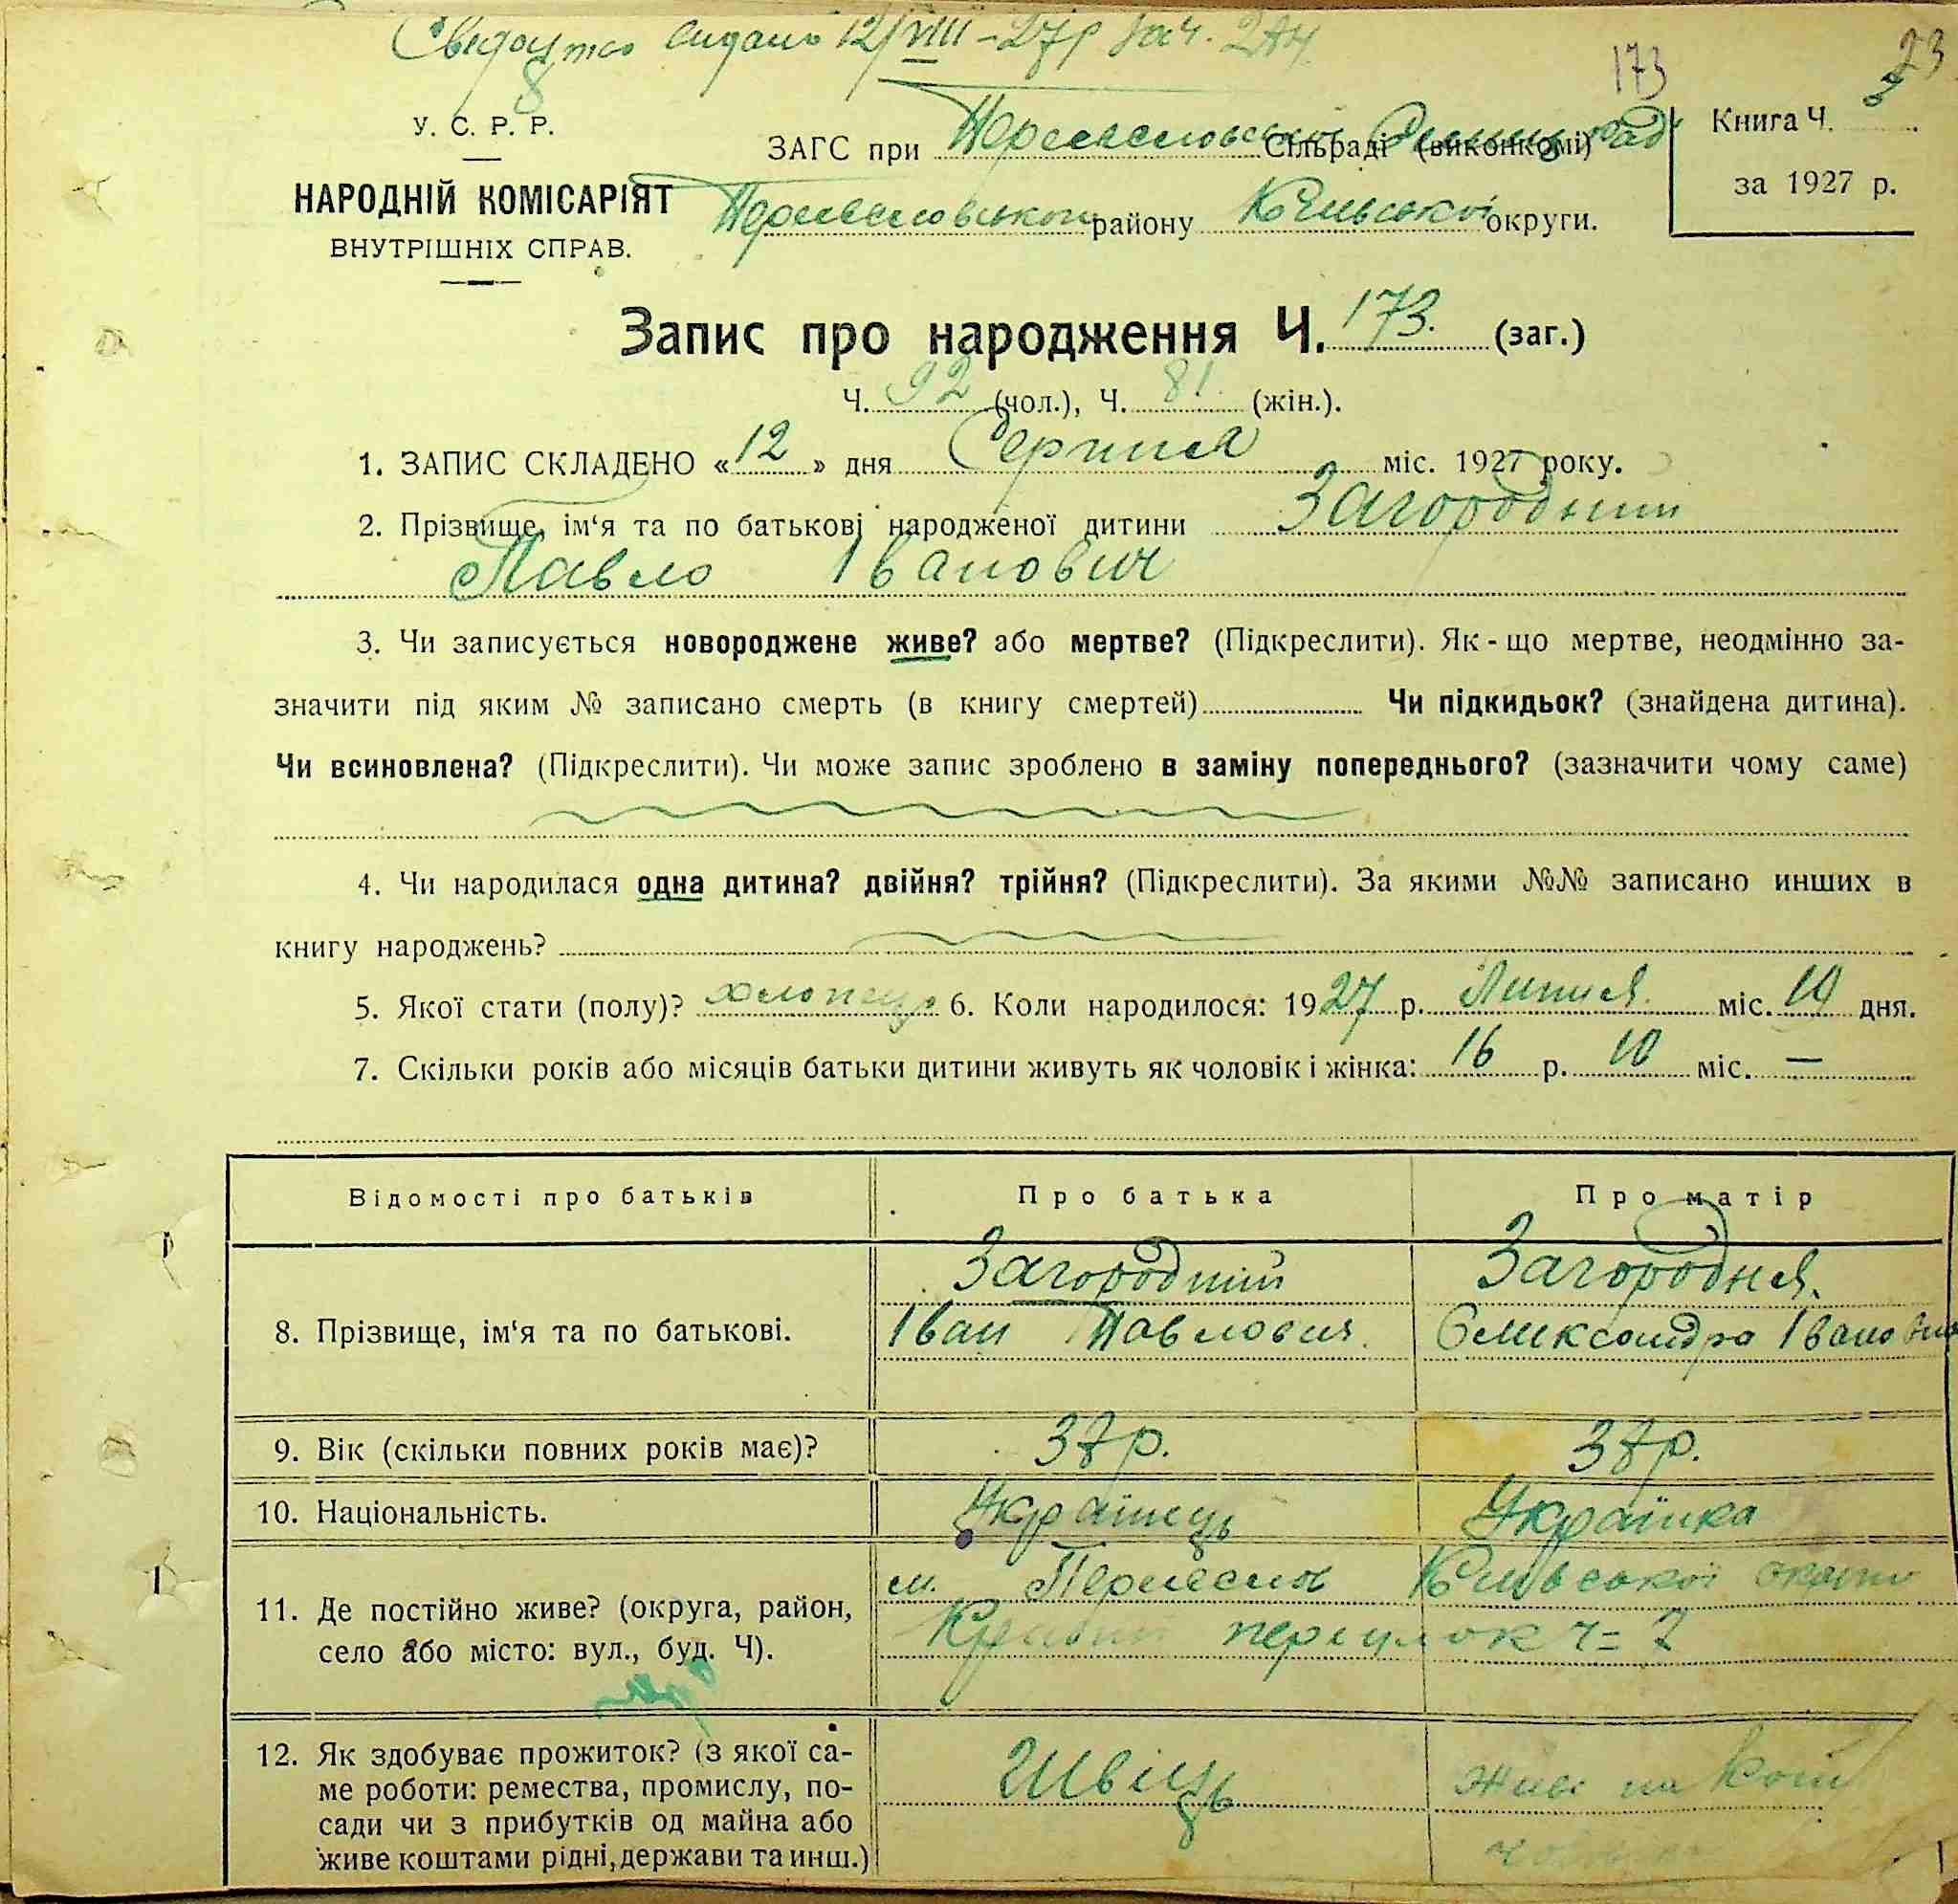 видано 12/VIII-27р
173
23
У. С. Р. Р.
НАРОДНІЙ КОМІСАРІЯТ
ВНУТРІШНІХ СПРАВ.
ЗАГС при Сільраді (виконкомі)
району Київської округи.
Книга Ч. 3
за 1927 р.
Запис про народження Ч. 173. (заг.)
Ч. 92 (чол.), Ч. 81 (жін.).
1. ЗАПИС СКЛАДЕНО «12» дня Серпня міс. 1927 року.
2. Прізвище, ім‘я та по батькові народженої дитини Загородний
Павло Іванович
3. Чи записується новороджене живе? або мертве? (Підкреслити). Як-що мертве, неодмінно за-
значити під яким № записано смерть (в книгу смертей) Чи підкидьок? (знайдена дитина).
Чи всиновлена? (Підкреслити). Чи може запис зроблено в заміну попереднього? (зазначити чому саме)
4. Чи народилася одна дитина? двійня? трійня? (Підкреслити). За якими №№ записано инших в
книгу народжень?
5. Якої стати (полу)? хлопець 6. Коли народилося: 1927 р. Липня міс. дня.
7. Скільки років або місяців батьки дитини живуть як чоловік і жінка: 16 р. 10 міс. —
Відомості про батьків Про батька Про матір
8. Прізвище, ім‘я та по батькові. Загородній Загородня
Іван Павлович Олександра Івановна
9. Вік (скільки повних років має)? 37р. 37р.
10. Національність. Українець Українка
11. Де постійно живе? (округа, район,
село або місто: вул., буд. Ч).
м. Київської
переулок ч= 7
12. Як здобуває прожиток? (з якої са-
ме роботи: ремества, промислу, по-
сади чи з прибутків од майна або
живе коштами рідні, держави та инш.)
Швець Живе на